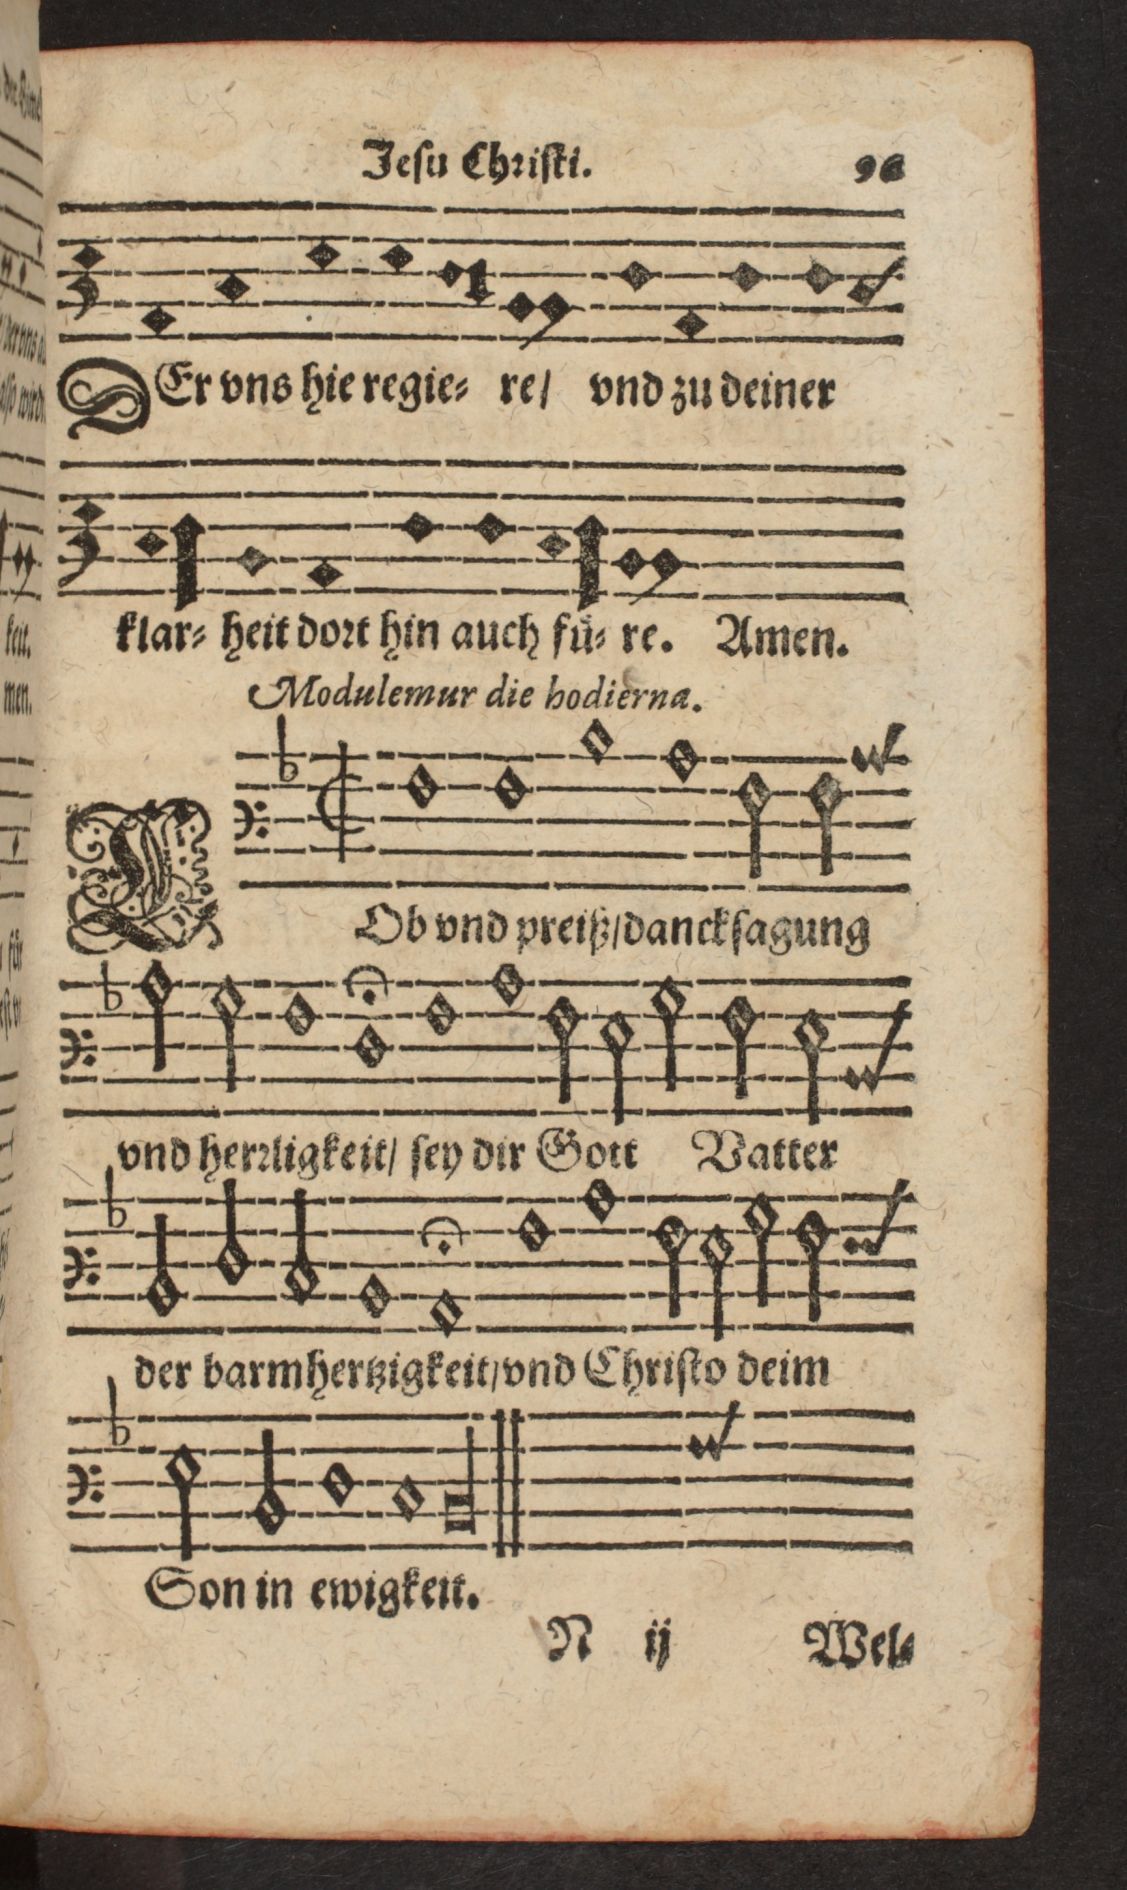 Jesu Christi. 96
DEr vns hie regie- re/ vnd zu deiner
klar- heit dort hin auch fuͤ- re. Amen.
Modulemur die hodierna.
LOb vnd preiß/danckſagung
vnd herꝛligkeit/ ſey dir Gott Vatter
der barmhertzigkeit/vnd Chriſto deim
Son in ewigkeit.
N ij Wel-